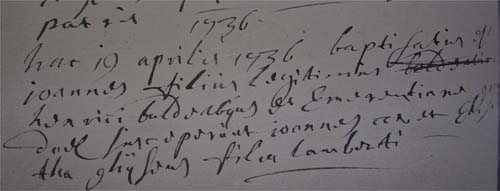 patris 1736
hac 19 aprilis 1736 baptisatus est
ioannes filius legitimus
henrici bolderbijns et Emerentiane
doel susceperunt ioannes et
tha ghijsens filia lamberti